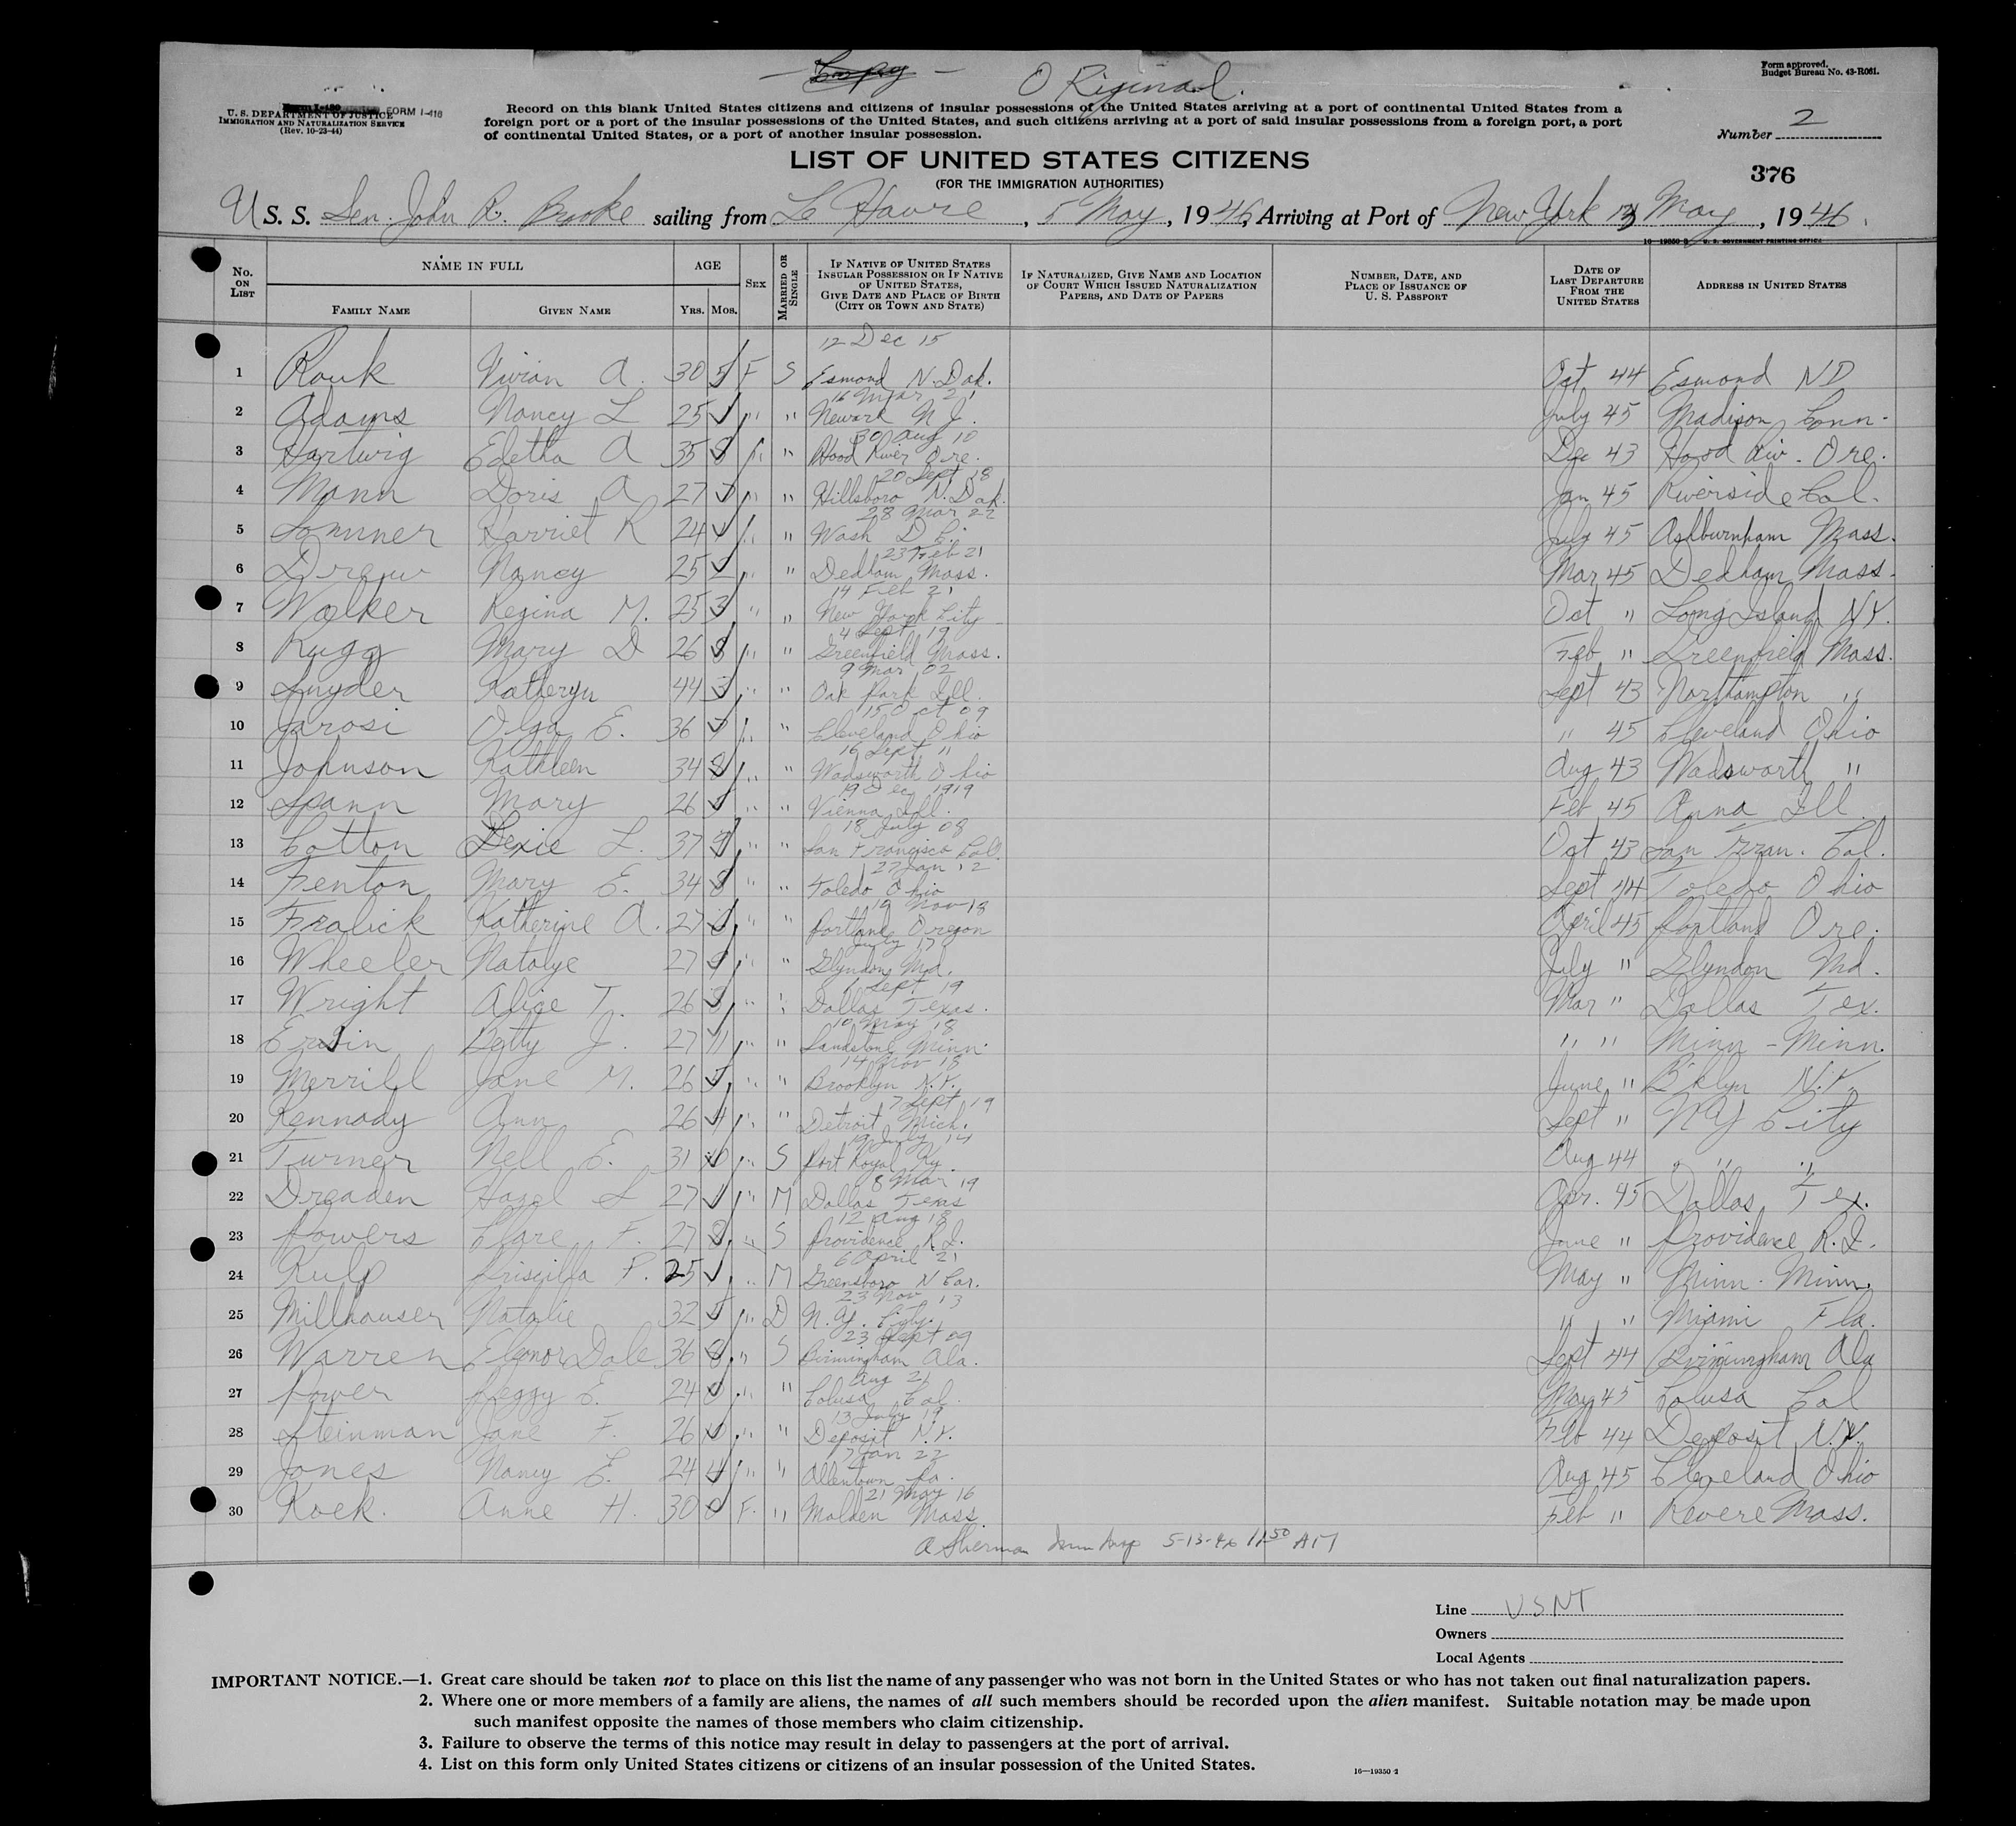 Copy
Original.
Form approved.
Budget Bureau No. 43-R061.
FORM I-416
U. S. DEPARTMENT OF JUSTICE
IMMIGRATION AND NATURALIZATION SERVICE
(Rev. 10-23-44)
Record on this blank United States citizens and citizens of insular possessions of the United States arriving at a port of continental United States from a
foreign port or a port of the insular possessions of the United States, and such citizens arriving at a port of said insular possessions from a foreign port, a port
of continental United States, or a port of another insular possession.
Number 2
LIST OF UNITED STATES CITIZENS
(FOR THE IMMIGRATION AUTHORITIES)
376
U S. S. Gen. John R. Brooke sailing from Le Havre, 5 May, 1946, Arriving at Port of New York 13 May, 1946.
16—19350-2 U. S. GOVERNMENT PRINTING OFFICE
No. ON LIST
NAME IN FULL
FAMILY NAME
GIVEN NAME
AGE
YRS. MOS.
SEX
MARRIED OR SINGLE
IF NATIVE OF UNITED STATES INSULAR POSSESSION OR IF NATIVE OF UNITED STATES, GIVE DATE AND PLACE OF BIRTH (CITY OR TOWN AND STATE)
IF NATURALIZED, GIVE NAME AND LOCATION OF COURT WHICH ISSUED NATURALIZATION PAPERS, AND DATE OF PAPERS
NUMBER, DATE, AND PLACE OF ISSUANCE OF U. S. PASSPORT
DATE OF LAST DEPARTURE FROM THE UNITED STATES
ADDRESS IN UNITED STATES
12 Dec 15
1 Rouk Vivian A. 30 5 F S Esmond N. Dak. Oct 44 Esmond ND
16 Mar 21
2 Adams Nancy L 25 " " Newark N J. July 45 Madison, Conn.
30 Aug 10
3 Hartwig Edetha A 35 8 " " Hood River Ore. Dec 43 Hood Riv. Ore.
20 Sept 18
4 Mann Doris A 27 7 " " Hillsboro N. Dak. Jan 45 Riverside Cal.
28 Mar 22
5 Harriet R 24 " " Wash D C. July 45 Ashburnham Mass.
23 Feb 21
6 Drew Nancy 25 2 " " Dedham Mass. Mar 45 Dedham, Mass.
14 Feb 21
7 Walker Regina M. 25 3 " " New York City Oct " Long Island NY.
4 Sept 19
8 Rugg Mary D 26 8 " " Greenfield Mass. Feb " Greenfield Mass.
9 Mar 02
9 Snyder Katheryn 44 3 " " Oak Park Ill. Sept 43 Northampton "
15 Oct 09
10 Jarosi Olga E. 36 7 " " Cleveland Ohio " 45 Cleveland Ohio
16 Sept 11
11 Johnson Kathleen 34 8 " " Wadsworth Ohio Aug 43 Wadsworth "
19 Dec 1919
12 Spann Mary 26 5 " " Vienna Ill. Feb 45 Anna Ill.
18 July 08
13 Cotton Dexie L. 37 9 " " San Francisco Cal. Oct 43 San Fran. Cal.
27 Jan 12
14 Fenton Mary E. 34 8 " " Toledo Ohio Sept 44 Toledo Ohio
19 Nov 18
15 Fralick Katherine A. 27 " " Portland Oregon April 45 Portland Ore.
July 17
16 Wheeler Natalye 27 9 " " Glyndon, Md. July " Glyndon Md.
Sept 19
17 Wright Alice T. 26 8 " " Dallas Texas. Mar " Dallas Tex.
10 May 18
18 Ervin Betty J. 27 11 " " Sandstone Minn. " " Minn - Minn.
14 Nov 18
19 Merrill Jane M. 26 5 " " Brooklyn N.Y. June " B'klyn N.Y.
7 Sept 19
20 Kennody Ann 26 " " Detroit Mich. Sept " N Y City
19 July 14
21 Turner Nell E. 31 10 " S Port Royal Ky. Aug 44 " " "
8 Mar 19
22 Dreaden Hazel S 27 1 " M Dallas Texas Apr. 45 Dallas, Tex.
12 Aug 18
23 Powers Clare F. 27 8 " S Providence R.I. June " Providence R.I.
6 April 21
24 Kulp Priscilla P. 25 " M Greensboro N Car. May " Minn. Minn.
23 Nov 13
25 Millhauser Natalie 32 5 " D N.Y. City. " " Miami Fla.
23 Sept 09
26 Warren Eleonor Dale 36 8 " S Birmingham Ala. Sept 44 Birmingham Ala
Aug 21
27 Power Peggy E. 24 " " Colusa Cal. May 45 Colusa Cal
13 July 19
28 Steinman Jane F. 26 10 " " Deposit N.Y. Feb 44 Deposit N.Y.
7 Jan 22
29 Jones Nancy E. 24 4 " " Allentown Pa. Aug 45 Cleveland Ohio
21 May 16
30 Koek. Anne H. 30 0 F. " Malden Mass. Feb " Revere Mass.
A Sherman Imm Insp 5-13-46 11:50 AM
Line USNT
Owners
Local Agents
IMPORTANT NOTICE.—1. Great care should be taken not to place on this list the name of any passenger who was not born in the United States or who has not taken out final naturalization papers.
2. Where one or more members of a family are aliens, the names of all such members should be recorded upon the alien manifest. Suitable notation may be made upon
such manifest opposite the names of those members who claim citizenship.
3. Failure to observe the terms of this notice may result in delay to passengers at the port of arrival.
4. List on this form only United States citizens or citizens of an insular possession of the United States.
16—19350-2